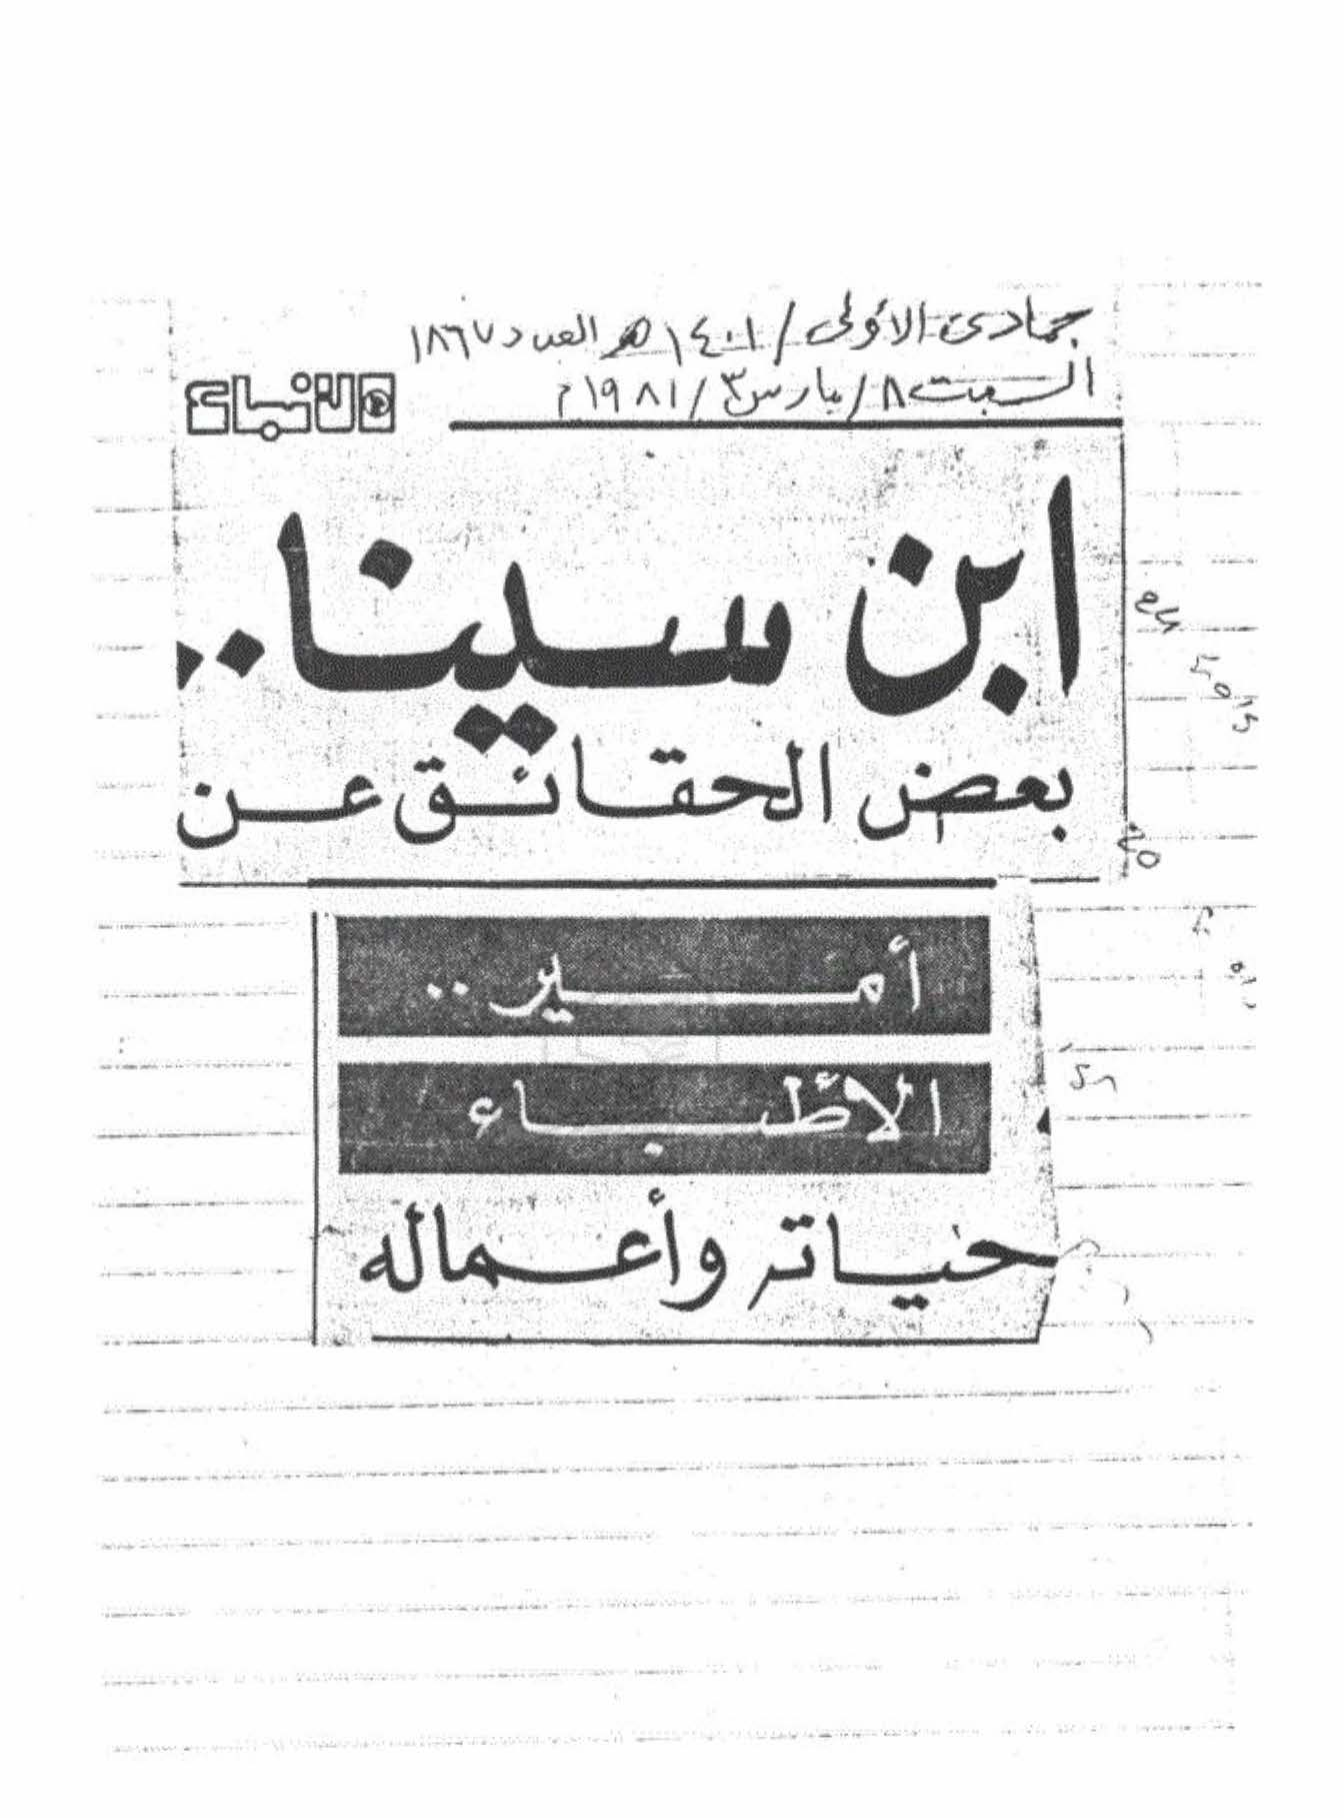 جمادى الأولى / ١٤٠١ هـ العدد ١٨٦٧
السبت ٨ / مارس ٣ / ١٩٨١ م
الانباء
ابن سينا..
بعض الحقائق عن
أمير ..
الأطباء
حياته وأعماله